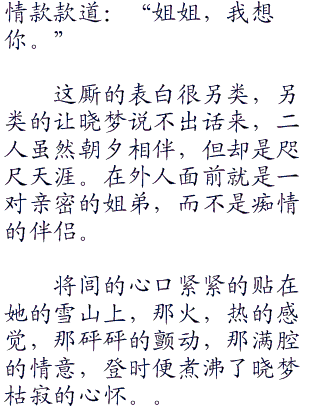 情款款道：“姐姐，我想
你。”
这厮的表白很另类，另
类的让晓梦说不出话来，二
人虽然朝夕相伴，但却是咫
尺天涯。在外人面前就是一
对亲密的姐弟，而不是痴情
的伴侣。
将闾的心口紧紧的贴在
她的雪山上，那火，热的感
觉，那砰砰的颤动，那满腔
的情意，登时便煮沸了晓梦
枯寂的心怀。。